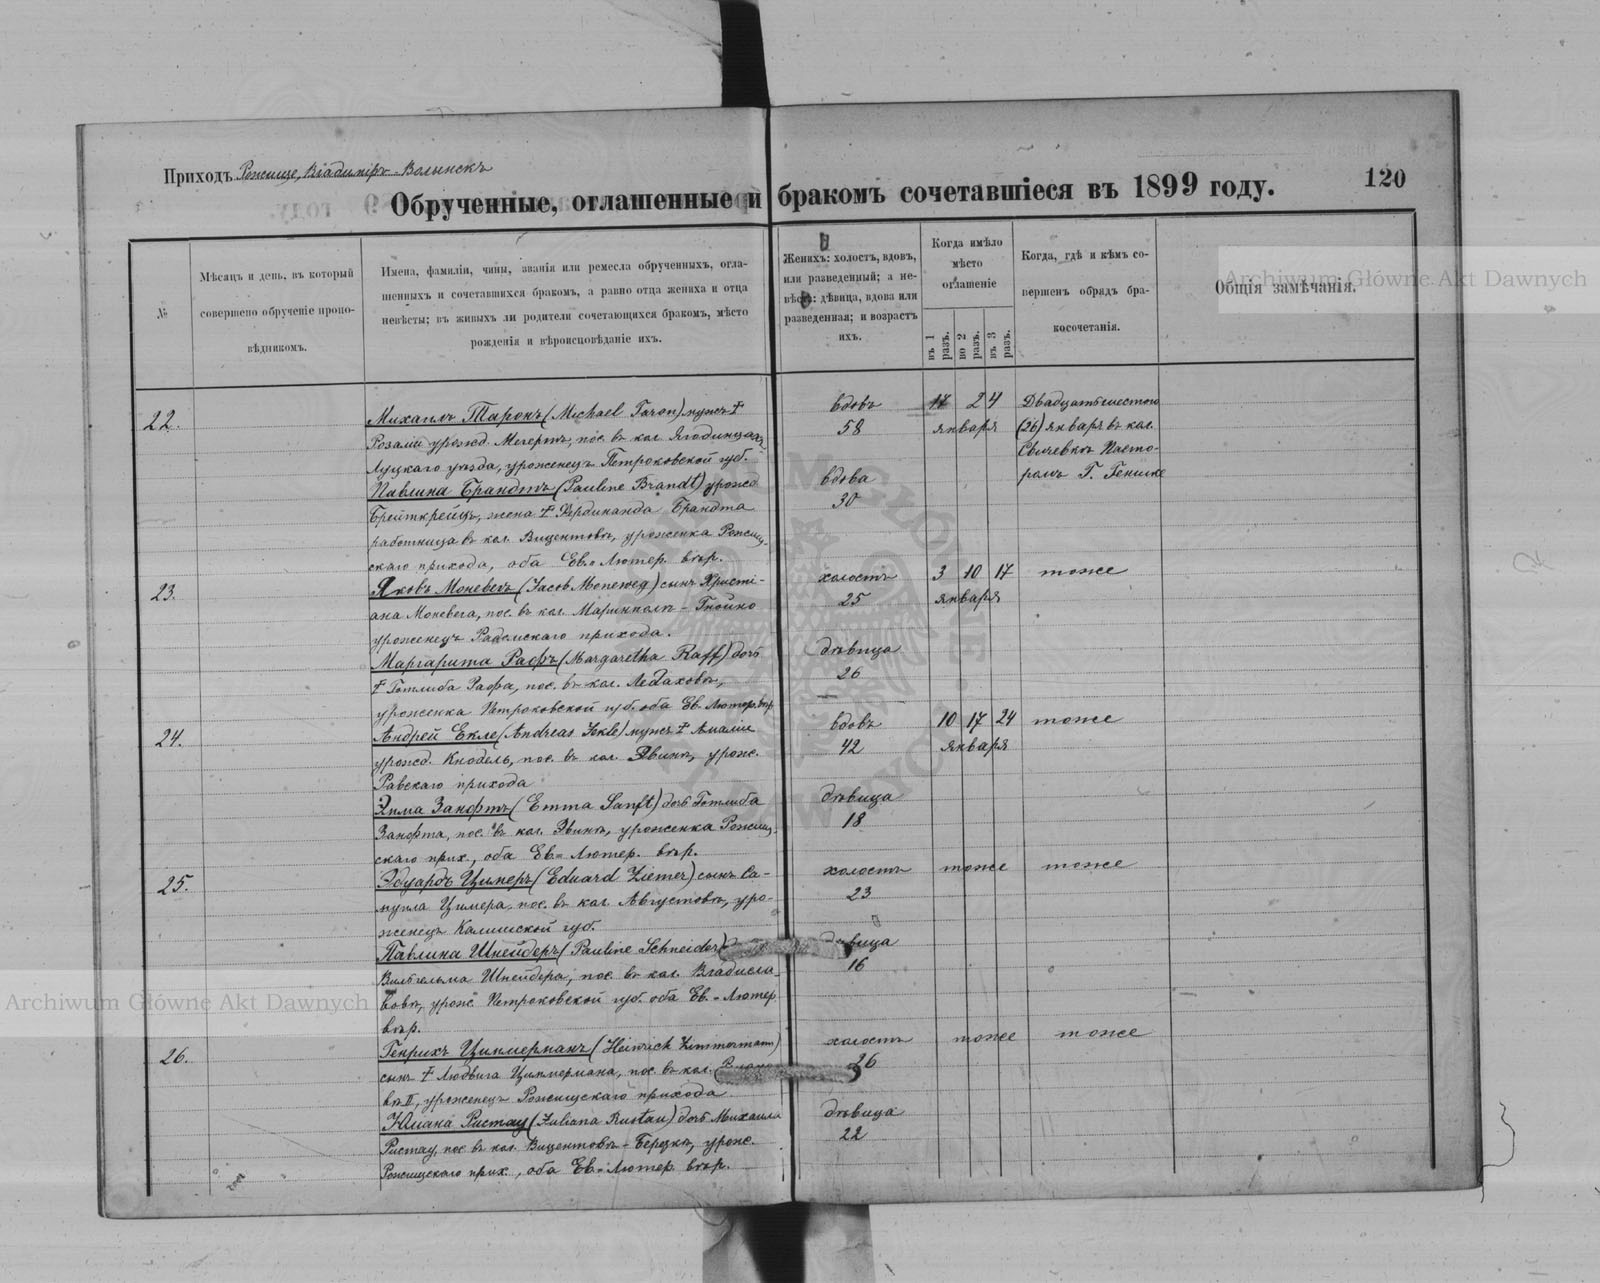 Приходъ Рожище, Владимiръ-Волынскъ
Обрученные, оглашенные и бракомъ сочетавшіеся въ 1899 году.
120
№
Мѣсяцъ и день, въ который
совершено обрученіе пропо-
вѣдникомъ.
Имена, фамиліи, чины, званія или ремесла обрученныхъ, огла-
шенныхъ и сочетавшихся бракомъ, а равно отца жениха и отца
невѣсты; въ живыхъ ли родители сочетающихся бракомъ, мѣсто
рожденія и вѣроисповѣданіе ихъ.
Женихъ: холостъ, вдовъ,
или разведенный; а не-
вѣста: дѣвица, вдова или
разведенная; и возрастъ
ихъ.
Когда имѣло
мѣсто
оглашеніе
въ 1 разъ.
во 2 разъ.
въ 3 разъ.
Когда, гдѣ и кѣмъ со-
вершенъ обрядъ бра-
косочетанія.
Общія замѣчанія.
Archiwum Główne Akt Dawnych
22.
Михаилъ Таронъ (Michael Taron) мужъ †
Розаліи урожд. Мегертъ, пос. въ кол. Ягодинцахъ,
Луцкаго уѣзда, уроженецъ Петроковской губ.
Павлина Брандтъ (Pauline Brandt) урожд
Брейткрейцъ, жена † Фердинанда Брандта
работница въ кол. Вицентовъ, уроженка Рожищ-
скаго прихода, оба Ев.-Лютер. вѣр.
вдовъ
58
вдова
30
17 24
января
Двадцать шестого
(26) января въ кол.
пасто-
ромъ Г. Генике
23.
Яковъ Моневегъ (Jacob Moneweg) сынъ Христі-
ана Моневега, пос. въ кол. Маринполь-Гнойно
уроженецъ Радомскаго прихода.
Маргарита Рафъ (Margaretha Raff) дочь
† Готлиба Рафа, пос. въ кол.
уроженка Петроковской губ. оба Ев. Лютер. вѣр.
холостъ
25
дѣвица
26
3 10 17
января
тоже
24.
Андрей Екле (Andreas Jekle) мужъ † Амаліи
урожд. Кнодель, пос. въ кол. урож.
Равскаго прихода
Эмма Занфтъ (Emma Sanft) дочь Готлиба
Занфта, пос. въ кол. уроженка Рожищ-
скаго прих., оба Ев.-Лютер. вѣр.
вдовъ
42
дѣвица
18
10 17 24
января
тоже
25.
Эдуардъ Цимеръ (Eduard Ziemer) сынъ Са-
муила Цимера, пос. въ кол. Августовъ, уро-
женецъ Калишской губ.
Павлина Шнейдеръ (Pauline Schneider)
Вильгельма Шнейдера, пос. въ кол. Владисла-
вовъ, урож. Петроковской губ. оба Ев.-Лютер
вѣр.
холостъ
23
дѣвица
16
тоже
тоже
26.
Генрихъ Циммерманъ (Heinrich Zimmermann)
сынъ † Людвига Циммермана, пос. въ кол.
въ II, уроженецъ Рожищскаго прихода
Юлiана Рустау (Juliana Rustau) дочь Михаила
Рустау, пос. въ кол. Вицентовъ-Березкъ, урож.
Рожищскаго прих., оба Ев.-Лютер. вѣр.
холостъ
26
дѣвица
22
тоже
тоже
Archiwum Główne Akt Dawnych